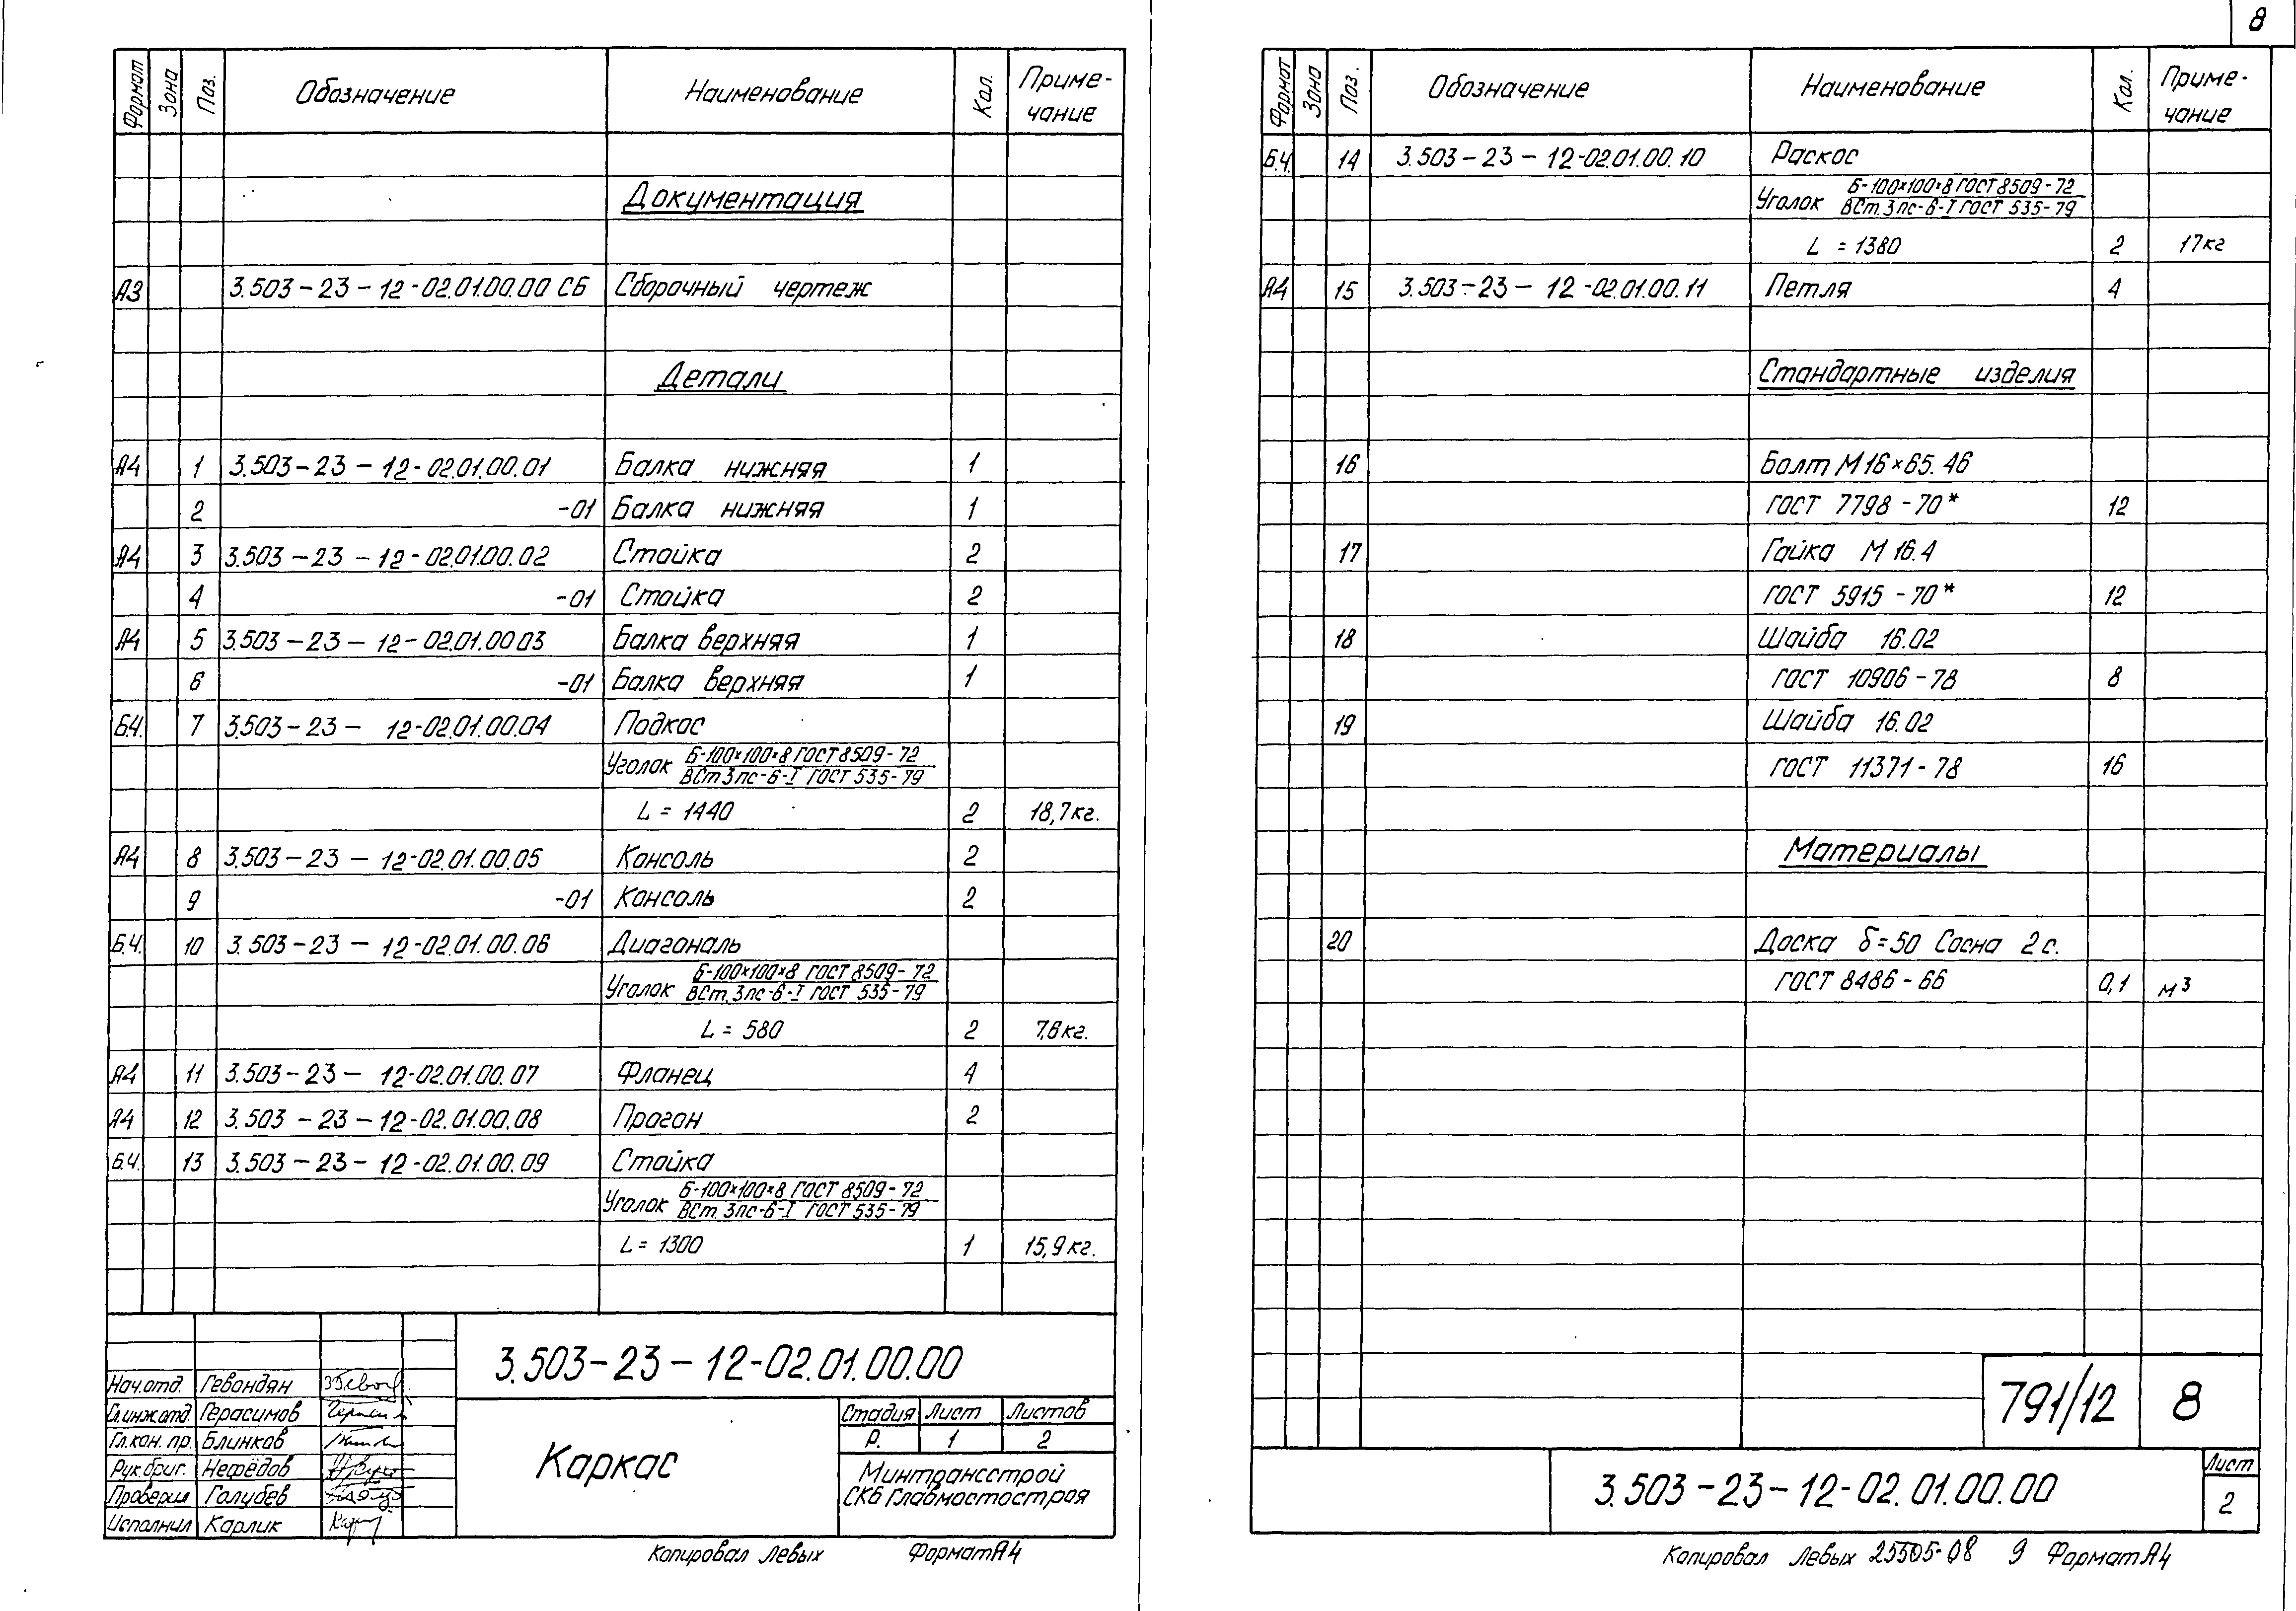 8
Формат Зона Поз. Обозначение Наименование Кол. Приме-
чание
Документация
А3 3.503-23-12-02.01.00.00 СБ Сборочный чертеж
Детали
А4 1 3.503-23-12-02.01.00.01 Балка нижняя 1
2 -01 Балка нижняя 1
А4 3 3.503-23-12-02.01.00.02 Стойка 2
4 -01 Стойка 2
А4 5 3.503-23-12-02.01.00 03 Балка верхняя 1
6 -01 Балка верхняя 1
Б.Ч. 7 3.503-23-12-02.01.00.04 Подкос
Уголок Б-100×100×8 ГОСТ 8509-72
ВСт.3пс-6-I ГОСТ 535-79
L = 1440 2 18,7кг.
А4 8 3.503-23-12-02.01.00.05 Консоль 2
9 -01 Консоль 2
Б.Ч. 10 3.503-23-12-02.01.00.06 Диагональ
Уголок Б-100×100×8 ГОСТ 8509-72
ВСт.3пс-6-I ГОСТ 535-79
L = 580 2 7,6кг.
А4 11 3.503-23-12-02.01.00.07 Фланец 4
А4 12 3.503-23-12-02.01.00.08 Прогон 2
Б.Ч. 13 3.503-23-12-02.01.00.09 Стойка
Уголок Б-100×100×8 ГОСТ 8509-72
ВСт.3пс-6-I ГОСТ 535-79
L = 1300 1 15,9кг.
3.503-23-12-02.01.00.00
Нач.отд. Гевондян
Гл.инж.отд. Герасимов
Гл.кон.пр. Блинков
Рук.бриг. Нефёдов
Проверил Голубев
Исполнил Карлик
Каркас
Стадия Лист Листов
Р. 1 2
Минтрансстрой
СКБ Главмостостроя
Копировал Левых Формат А4
Формат Зона Поз. Обозначение Наименование Кол. Приме-
чание
Б.Ч. 14 3.503-23-12-02.01.00.10 Раскос
Уголок Б-100×100×8 ГОСТ 8509-72
ВСт.3пс-6-I ГОСТ 535-79
L = 1380 2 17кг
А4 15 3.503-23-12-02.01.00.11 Петля 4
Стандартные изделия
16 Болт М16×65.46
ГОСТ 7798-70* 12
17 Гайка М16.4
ГОСТ 5915-70* 12
18 Шайба 16.02
ГОСТ 10906-78 8
19 Шайба 16.02
ГОСТ 11371-78 16
Материалы
20 Доска δ=50 Сосна 2с.
ГОСТ 8486-66 0,1 м³
791/12 8
3.503-23-12-02.01.00.00
Лист
2
Копировал Левых 25505-08 9 Формат А4